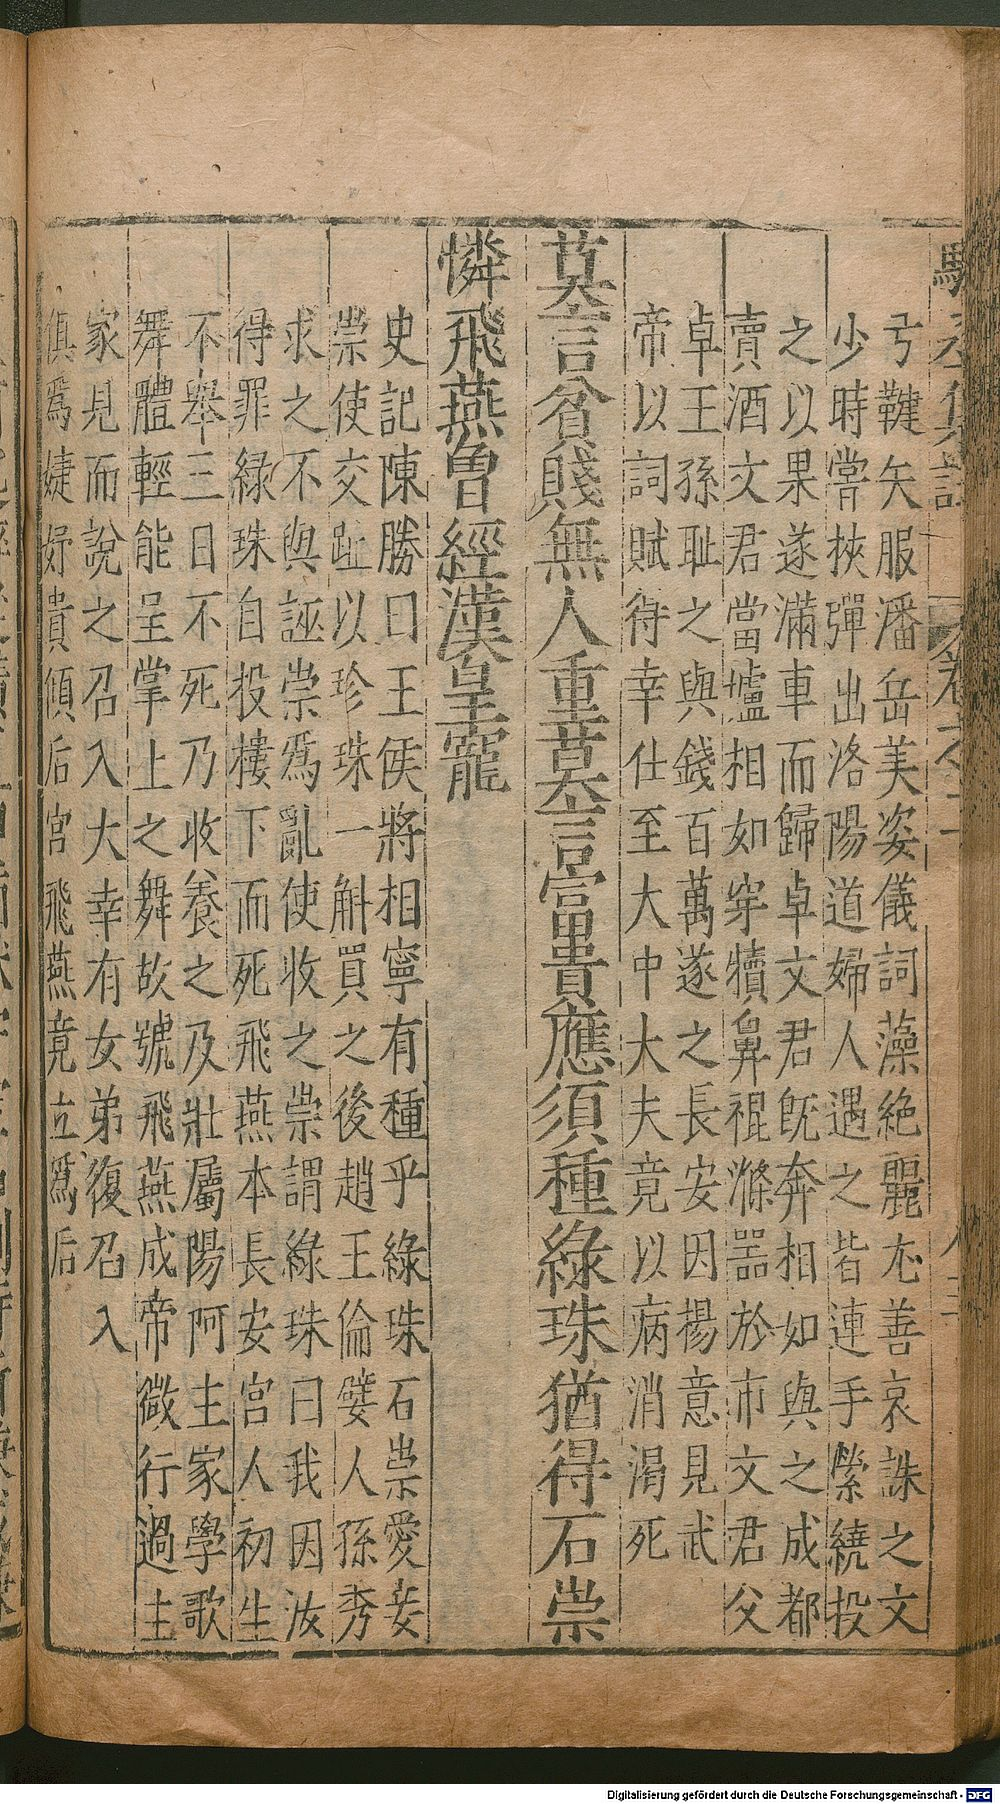 弓鞬矢服潘岳美姿儀詞藻絶麗尤善哀誄之文
少時嘗挾彈出洛陽道婦人遇之皆連手縈繞投
之以果遂滿車而歸卓文君既奔相如與之成都
賣酒文君當壚相如穿犢鼻裩滌噐於市文君父
卓王孫耻之與錢百萬遂之長安因揚意見武
帝以詞賦待幸仕至大中大夫竟以病消渴死
莫言貧賤無人重莫言富貴應須種綠珠猶得石崇
憐飛燕曾經漢皇寵
史記陳勝曰王侯將相寧有種乎綠珠石崇愛妾
崇使交趾以珍珠一斛買之後趙王倫嬖人孫秀
求之不與誣崇爲亂使收之崇謂綠珠曰我因汝
得罪綠珠自投樓下而死飛燕本長安宮人初生
不舉三日不死乃收養之及壯屬陽阿主家學歌
舞體輕能呈掌上之舞故號飛燕成帝微行過主
家見而說之召入大幸有女弟復召入
俱爲婕妤貴傾后宮飛燕竟立爲后
Digitalisierung gefördert durch die Deutsche Forschungsgemeinschaft - DFG